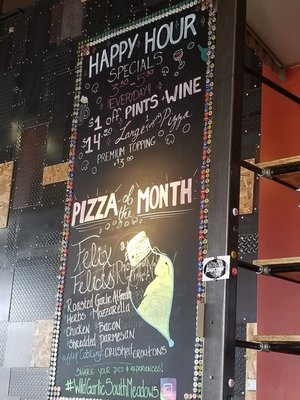 HAPPY HOUR
SPECIALS
3:30-5:30
EVERYDAY!!
$1 off PINTS & WINE
$14.50 Large 1-T Pizza
PREMIUM TOPPING
$3.00
PIZZA of the MONTH
Felix
Felicis
Roasted Garlic Alfredo
Herbs Mozzarella
Chicken Bacon
shredded parmesan
Crushed croutons
SHARE YOUR PICS & EXPERIENCES!
#WildGarlicSouthMeadows